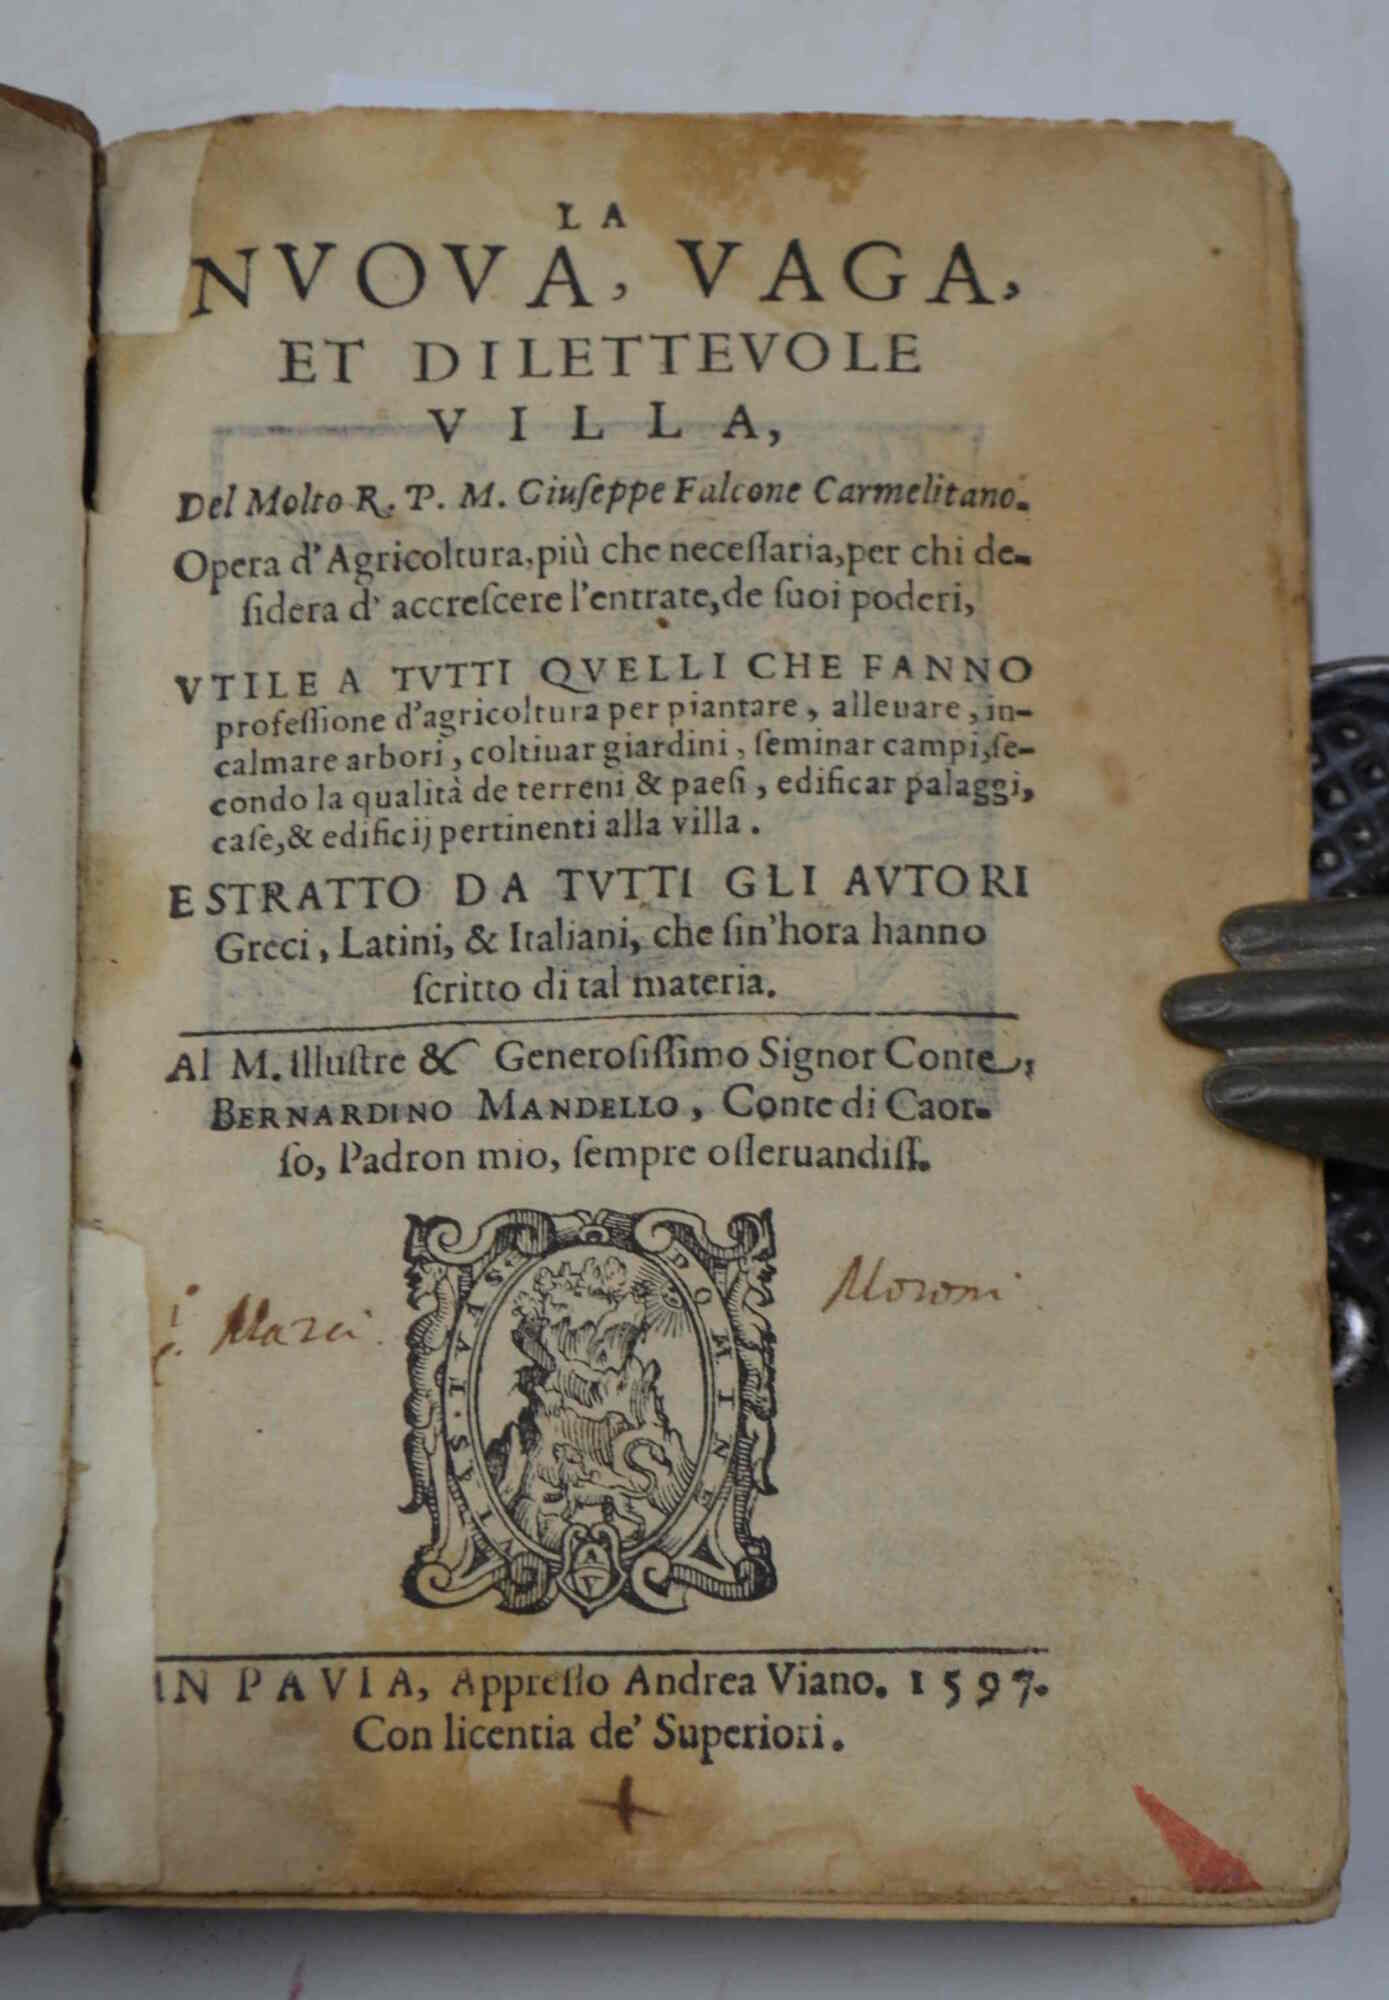 LA
NVOVA, VAGA,
ET DILETTEVOLE
VILLA,
Del Molto R. P. M. Giuſeppe Falcone Carmelitano.
Opera d'Agricoltura, più che neceſſaria, per chi de-
ſidera d' accreſcere l'entrate, de ſuoi poderi,
VTILE A TVTTI QVELLI CHE FANNO
profeſſione d'agricoltura per piantare, alleuare, in-
calmare arbori, coltiuar giardini, ſeminar campi, ſe-
condo la qualità de terreni & paeſi, edificar palaggi,
caſe, & edificij pertinenti alla villa.
ESTRATTO DA TVTTI GLI AVTORI
Greci, Latini, & Italiani, che ſin'hora hanno
ſcritto di tal materia.
Al M. Illuſtre & Generoſiſſimo Signor Conte,
BERNARDINO MANDELLO, Conte di Caor-
ſo, Padron mio, ſempre oſſeruandiſſ.
DOMINE
Marci
Moroni
AV
IN PAVIA, Appreſſo Andrea Viano. 1597.
Con licentia de' Superiori.